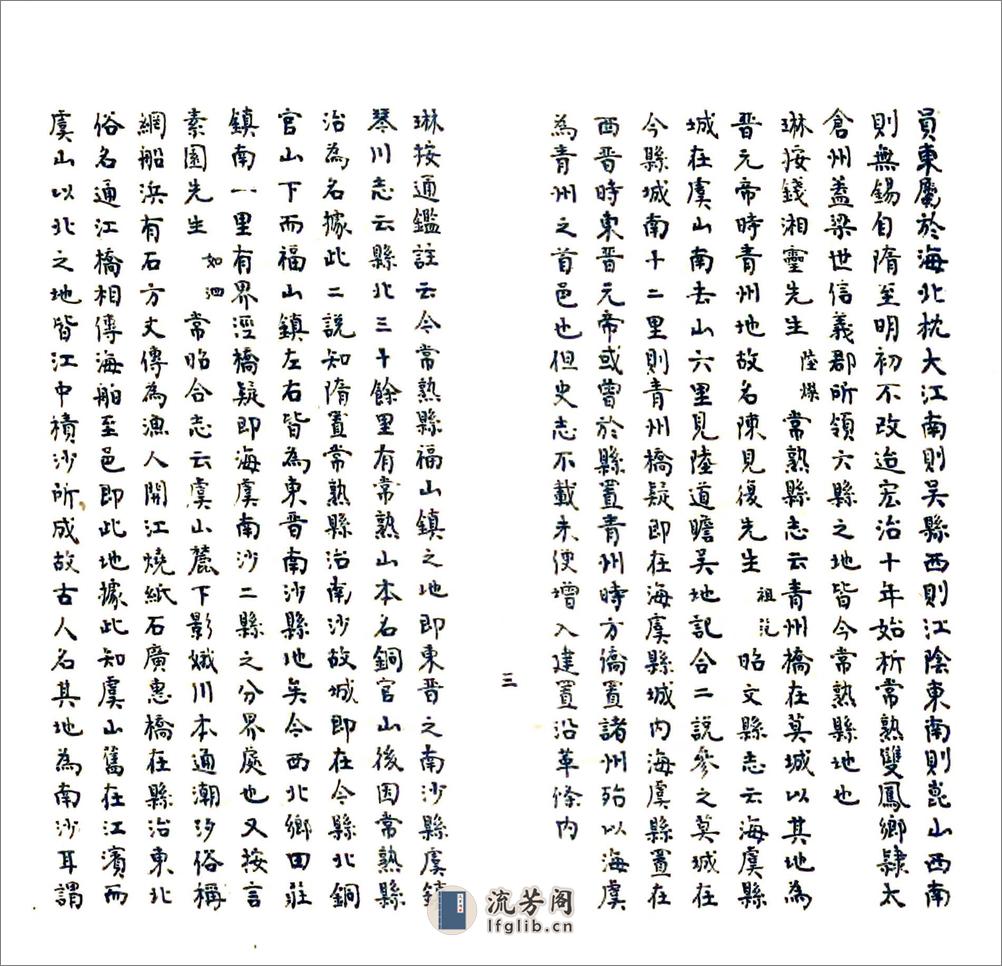 員東屬於海北枕大江南則吳縣西則江陰東南則崑山西南
則無錫自隋至明初不改迨宏治十年始析常熟雙鳳鄉隸太
倉州蓋梁世信義郡所領六縣之地皆今常熟縣地也
琳按錢湘靈先生陸燦常熟縣志云青州橋在莫城以其地為
晉元帝時青州地故名陳見復先生祖范昭文縣志云海虞縣
城在虞山南去山六里見陸道瞻吳地記合二說參之莫城在
今縣城南十二里則青州橋疑即在海虞縣城內海虞縣置在
西晉時東晉元帝或曾於縣置青州時方僑置諸州殆以海虞
為青州之首邑也但史志不載未便增入建置沿革條內
三
琳按通鑑註云今常熟縣福山鎮之地即東晉之南沙縣虞鎮
琴川志云縣北三十餘里有常熟山本名銅官山後因常熟縣
治為名據此二說知隋置常熟縣治南沙故城即在今縣北銅
官山下而福山鎮左右皆為東晉南沙縣地矣今西北鄉田莊
鎮南一里有界涇橋疑即海虞南沙二縣之分界處也又按言
素園先生如泗常昭合志云虞山麓下影娥川本通潮汐俗稱
網船浜有石方丈傳為漁人開江燒紙石廣惠橋在縣治東北
俗名通江橋相傳海舶至邑即此地據此知虞山舊在江濱而
虞山以北之地皆江中積沙所成故古人名其地為南沙耳謂
流芳阁
lfglib.cn